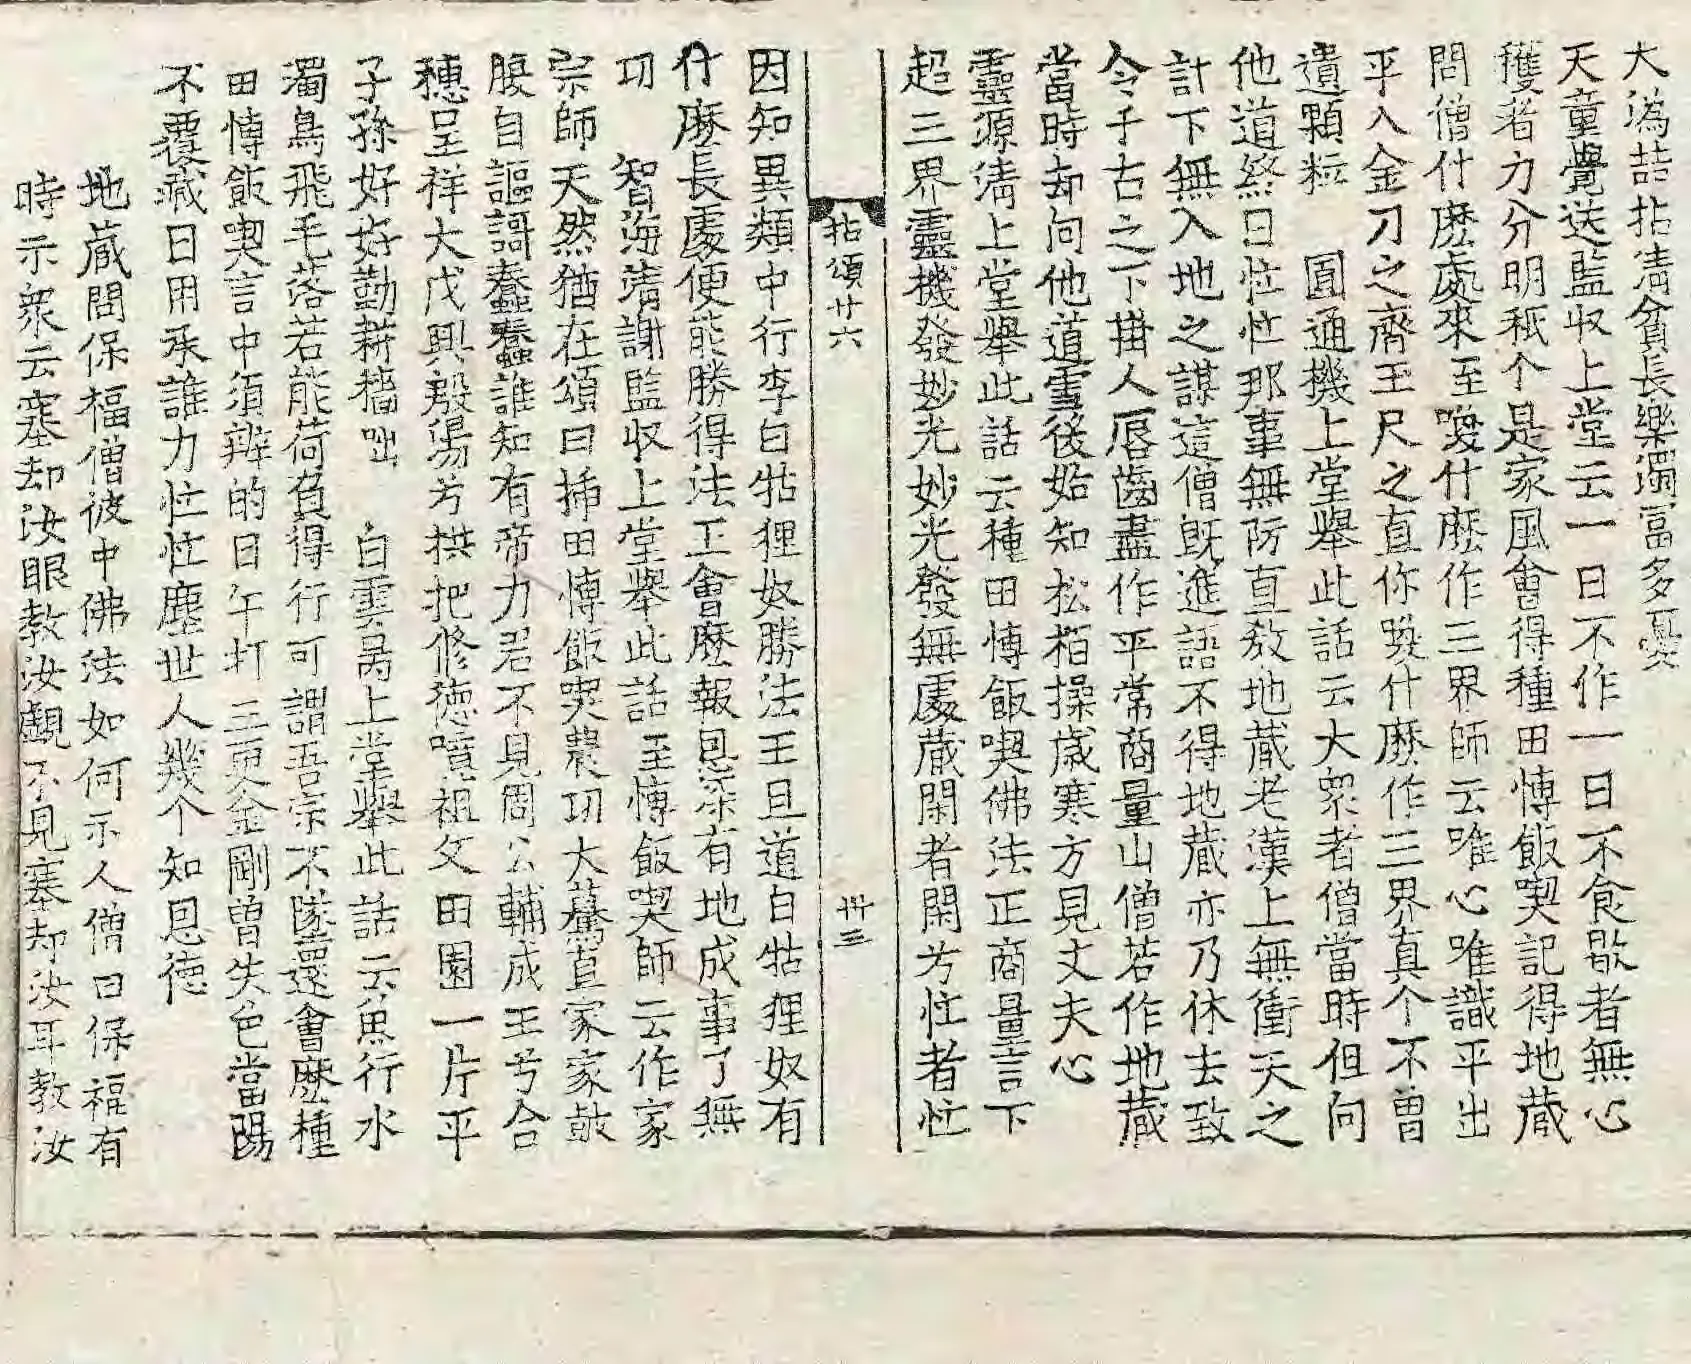 大溈喆拈淸貧長樂濁富多憂
天童覺送監收上堂云一日不作一日不食歇者無心
穫者力分明秖个是家風會得種田愽飯喫記得地藏
問僧什麽處來至喚什麽作三界師云唯心唯識平出
平入金刀之齊玉尺之直你喚什麽作三界真个不曾
遺顆粒 圓通機上堂舉此話云大衆者僧當時但向
他道終日忙忙那事無防直敎地藏老漢上無衝天之
計下無入地之謀這僧旣進語不得地藏亦乃休去致
令千古之下掛人唇齒盡作平常商量山僧若作地藏
當時却向他道雪後始知松栢操歲寒方見丈夫心
靈源淸上堂舉此話云種田愽飯喫佛法正商量言下
超三界靈機發妙光妙光發無處藏閑者閑兮忙者忙
拈頌廿六 卅三
因知異類中行李白牯狸奴勝法王且道白牯狸奴有
什麽長處便能勝得法王會麽報恩深有地成事了無
功 智海淸謝監收上堂舉此話至愽飯喫師云作家
宗師天然猶在頌曰揷田愽飯喫農功大驀直家家鼓
腹自謳謌蠢蠢誰知有帝力君不見周公輔成王兮合
穗呈祥大戊興殷湯兮拱把修德噴祖父田園一片平
子孫好好勤耕穡咄 白雲昺上堂舉此話云魚行水
濁鳥飛毛落若能荷負得行可謂吾宗不墜還會麽種
田愽飯喫言中須辨的日午打三更金剛曾失色當陽
不覆藏日用承誰力忙忙塵世人幾个知恩德
地藏問保福僧彼中佛法如何示人僧曰保福有
時示衆云塞却汝眼敎汝覰不見塞却汝耳敎汝